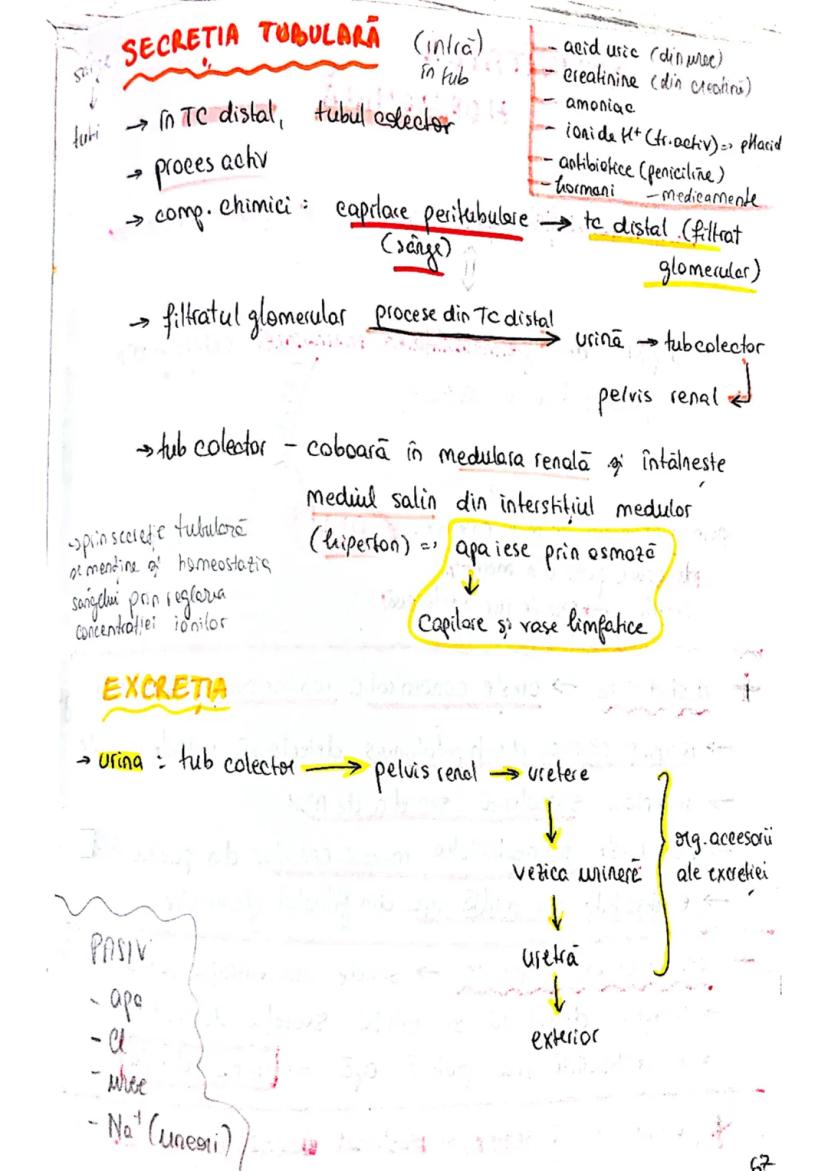 SECREȚIA TUBULARĂ (intră)
în tub
- acid uric (din uree)
- creatinine (din creatină)
- amoniac
- ioni de H⁺ (tr. activ) => pH acid
- antibiotice (peniciline)
- hormoni - medicamente
sânge
↓
tubi
→ în TC distal, tubul colector
→ proces activ
→ comp. chimici : capilare peritubulare → tc distal (filtrat
(sânge)
glomerular)
→ filtratul glomerular procese din TC distal → urină → tub colector
pelvis renal
→ tub colector - coboară în medulara renală și întâlnește
mediul salin din interstițiul medular
(hiperton) => apa iese prin osmoză
↓
capilare și vase limfatice
→ prin secreție tubulară
se menține și homeostazia
sângelui prin reglarea
concentrației ionilor
EXCREȚIA
→ urina : tub colector → pelvis renal → uretere
↓
vezica urinară
↓
uretră
↓
exterior
org. accesorii
ale excreției
PASIV
- apa
- Cl
- uree
- Na⁺ (uneori)
67